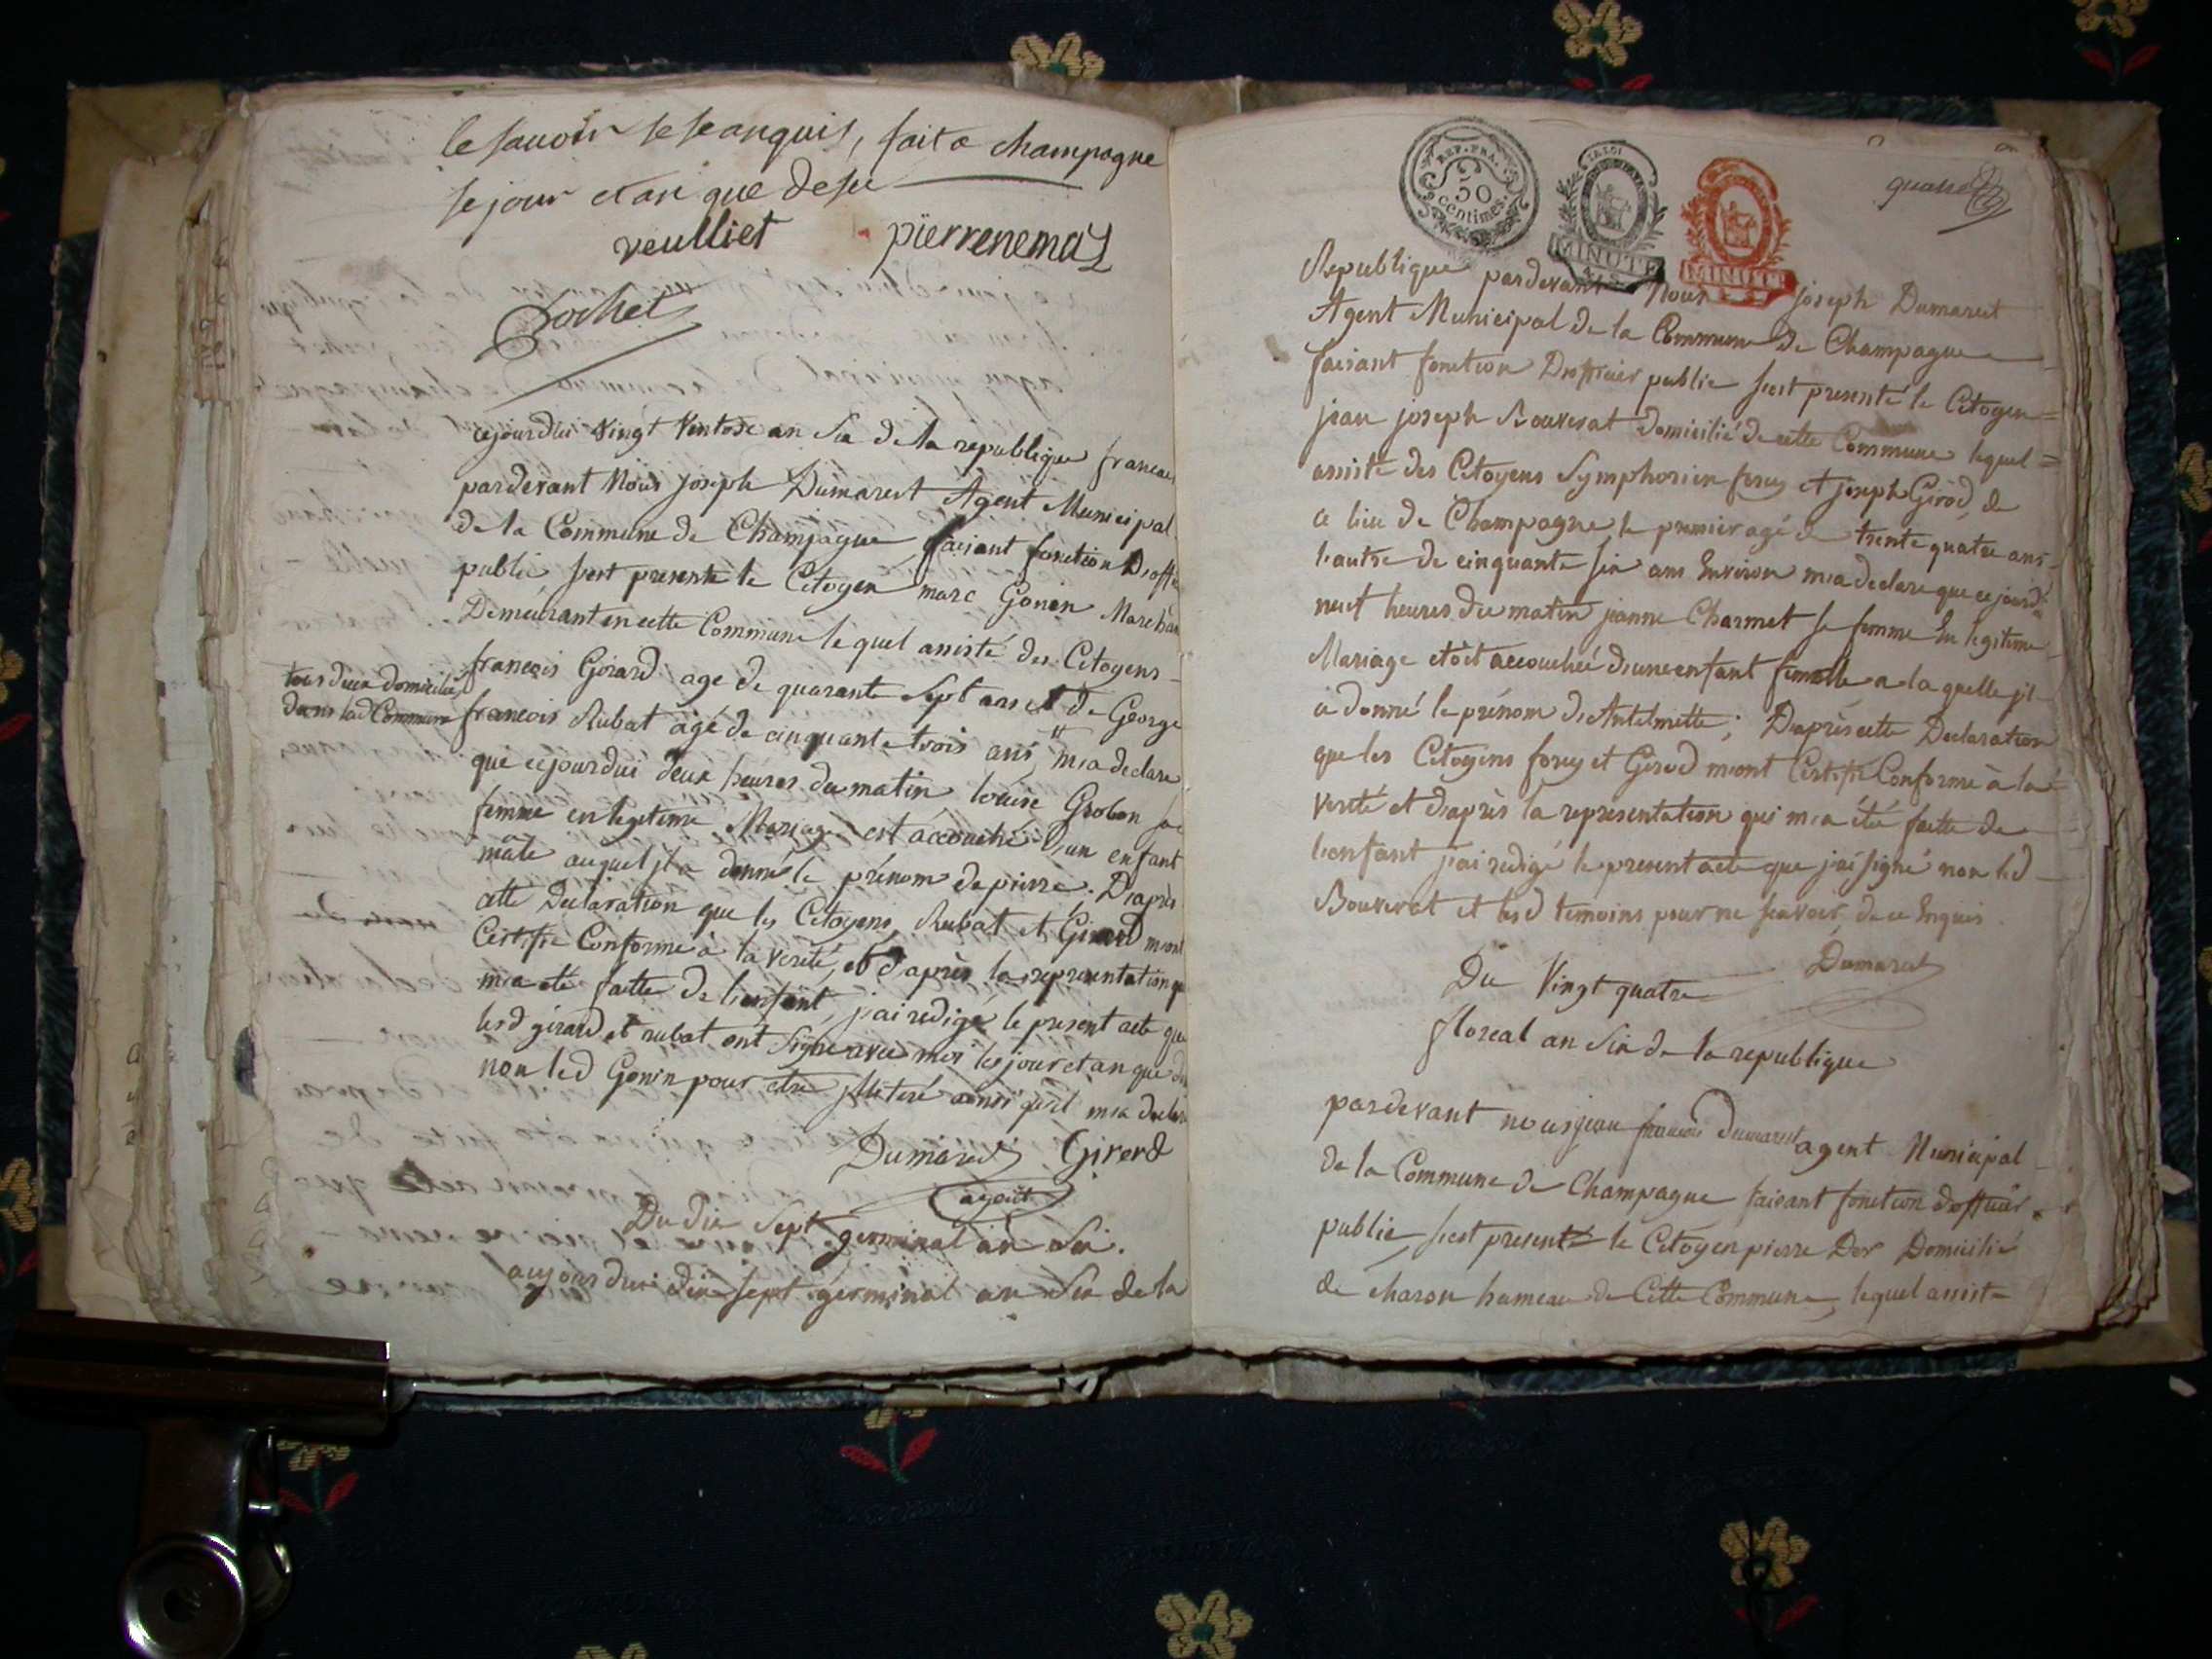 le savoir se seanquis, fait a champagne
se jour et an que desu
veulliet pierrenema
Sochet
cejourdhui vingt ventose an six de la republique francai
pardevant Nous joseph Dumarest Agent Municipal
de la Commune de Champagne, faisant fonction D'offi
public s'est presenté le Citoyen marc Gonin Marchan
Demeurant en cette Commune lequel assisté des Citoyens
françois Girard agé de quarante sept ans et de George
tous deux domiciliés
dans lad Commune
françois Rubat agé de cinquante trois ans, m'a declaré
que cejourdui deux heures du matin, louise Grobon sa
femme en legitime Mariage est accouché d'un enfant
mâle auquel jl a donné le prénom de pierre. D'après
cette Declaration que les Citoyens, Rubat et Girard m'ont
Certifié Conforme à la vérité, et d'après la representation qu
m'a eté faitte de l'enfant, j'ai redigé le present acte que
lesd girard et rubat ont signé avec moi les jour et an que d
non led Gonin pour etre jlliteré ainsi qu'il m'a declaré
Dumarest Girerd
agent
Du dix sept germinal an six.
aujourdui dix sept germinal an six de la
REP. FRA.
50
centimes
LA LOI
MINUTE
MINUTE
Republique pardevant Nous joseph Dumarest
Agent Municipal de la Commune de Champagne
faisant fonction D'officier public s'est presenté le Citoyen
jean joseph Bouverat domicilié de cette Commune lequel
assisté des Citoyens Symphorien forey et joseph Girod, de
ce lieu de Champagne, le premier agé de trente quatre ans
l'autre de cinquante six ans Environ m'a declaré que cejourd'
neuf heures du matin jeanne Charmet sa femme En legitime
Mariage etoit accouchée d'une enfant femelle a la quelle jl
a donné le prénom d'Antelmette; D'après cette Declaration
que les Citoyens forey et Gerod m'ont Certifié Conforme à la
verité et d'après la representation qui m'a été faitte de
l'enfant j'ai redigé le present acte que j'ai signé non led
Bouverat et lesd temoins pour ne scavoir, de ce Enquis.
Dumarest
Du Vingt quatre
floreal an six de la republique
pardevant nous jean francois dumarest agent Municipal
de la Commune de Champagne faisant fonction d'officier
public, s'est presenté le Citoyen pierre Dor Domicilié
de charon hameau de Cette Commune, lequel assisté